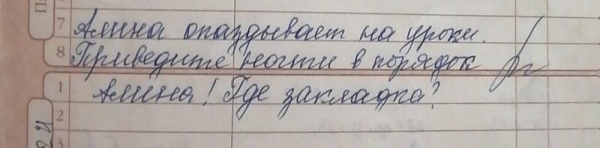 7 Алина опаздывает на уроки.
8 Приведите ногти в порядок
1 Алина! Где закладка?
2
3